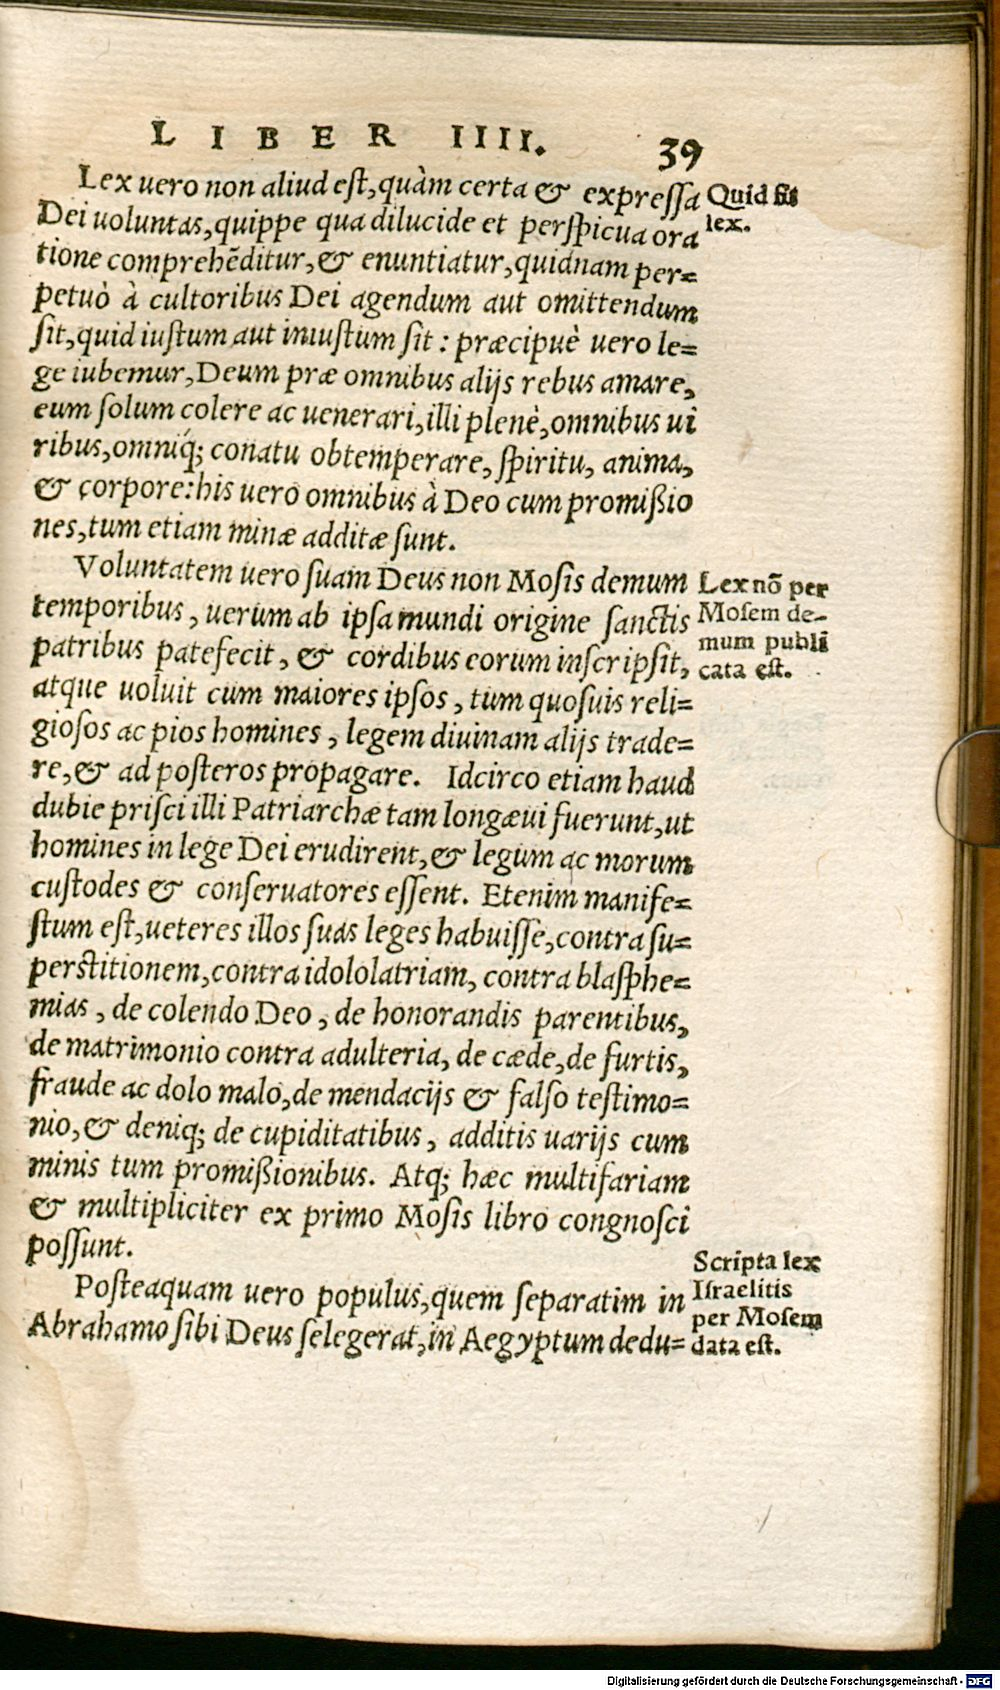 LIBER IIII. 39
Lex uero non aliud est, quàm certa & expressa
Dei uoluntas, quippe qua dilucide et perspicua ora
tione comprehēditur, & enuntiatur, quidnam per=
petuò à cultoribus Dei agendum aut omittendum
sit, quid iustum aut iniustum sit: præcipuè uero le=
ge iubemur, Deum præ omnibus alijs rebus amare,
eum solum colere ac uenerari, illi plenè, omnibus ui
ribus, omniq́; conatu obtemperare, spiritu, anima,
& corpore: his uero omnibus à Deo cum promißio
nes, tum etiam minæ additæ sunt.
Quid sit
lex.
Voluntatem uero suam Deus non Mosis demum
temporibus, uerum ab ipsa mundi origine sanctis
patribus patefecit, & cordibus eorum inscripsit,
atque uoluit cum maiores ipsos, tum quosuis reli=
giosos ac pios homines, legem diuinam alijs trade=
re, & ad posteros propagare. Idcirco etiam haud
dubie prisci illi Patriarchæ tam longæui fuerunt, ut
homines in lege Dei erudirent, & legum ac morum
custodes & conseruatores essent. Etenim manife=
stum est, ueteres illos suas leges habuisse, contra su=
perstitionem, contra idololatriam, contra blasphe=
mias, de colendo Deo, de honorandis parentibus,
de matrimonio contra adulteria, de cæde, de furtis,
fraude ac dolo malo, de mendacijs & falso testimo=
nio, & deniq; de cupiditatibus, additis uarijs cum
minis tum promißionibus. Atq; hæc multifariam
& multipliciter ex primo Mosis libro congnosci
possunt.
Lex nō per
Mosem de-
mum publi
cata est.
Posteaquam uero populus, quem separatim in
Abrahamo sibi Deus selegerat, in Aegyptum dedu=
Scripta lex
Israelitis
per Mosem
data est.
Digitalisierung gefördert durch die Deutsche Forschungsgemeinschaft - DFG